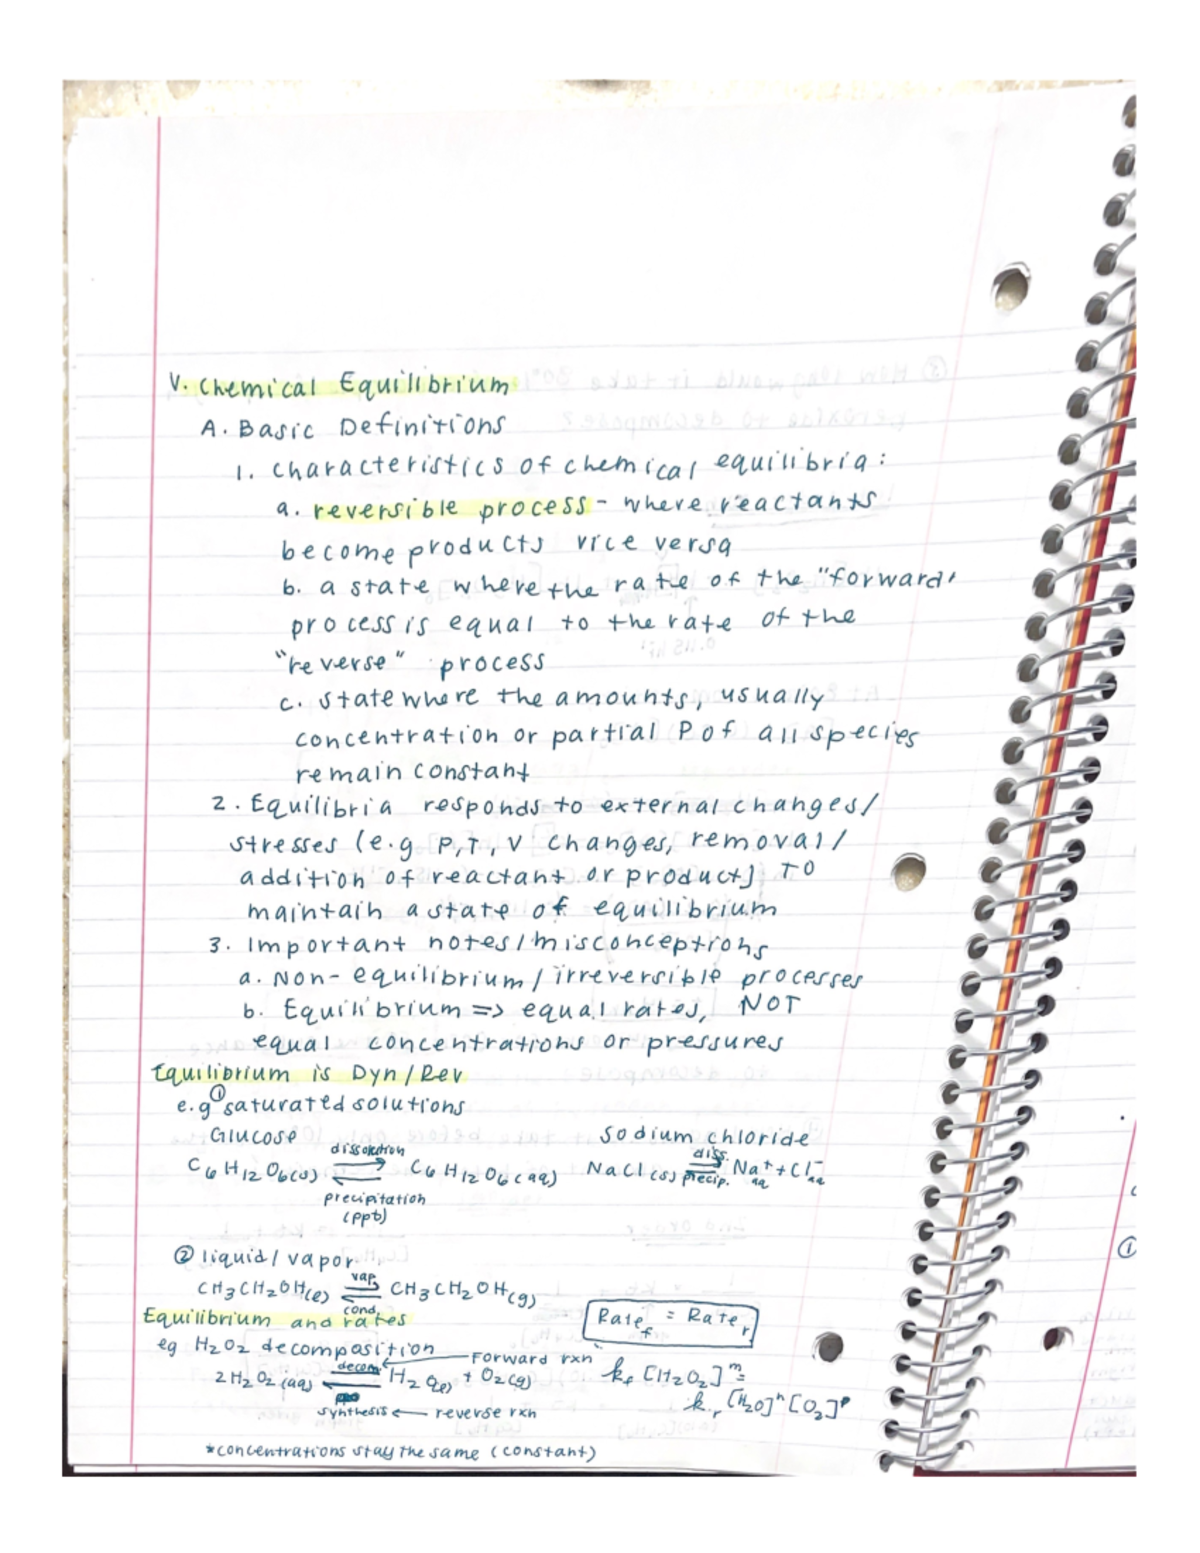 V. Chemical Equilibrium
A. Basic Definitions
1. Characteristics of chemical equilibria:
a. reversible process - where reactants
become products vice versa
b. a state where the rate of the "forward'
process is equal to the rate of the
"reverse" process
c. state where the amounts, usually
concentration or partial P of all species
remain constant
2. Equilibria responds to external changes/
stresses (e.g P, T, V changes, removal/
addition of reactant or product) TO
maintain a state of equilibrium
3. Important notes/misconceptions
a. Non-equilibrium/irreversible processes
b. Equilibrium => equal rates, NOT
equal concentrations or pressures
Equilibrium is Dyn/Rev
e.g ① saturated solutions
Glucose Sodium chloride
C6H12O6(s) dissolution ⇌ precipitation (ppt) C6H12O6(aq) NaCl(s) diss. ⇌ precip. Na+aq + Cl-aq
② liquid/vapor
CH3CH2OH(l) vap. ⇌ cond. CH3CH2OH(g)
Equilibrium and rates Ratef = Rater
eg H2O2 decomposition
2H2O2(aq) decom ⇌ H2O(l) + O2(g) ← Forward rxn kf[H2O2]^m =
synthesis ← reverse rxn kr[H2O]^n[O2]^p
*concentrations stay the same (constant)